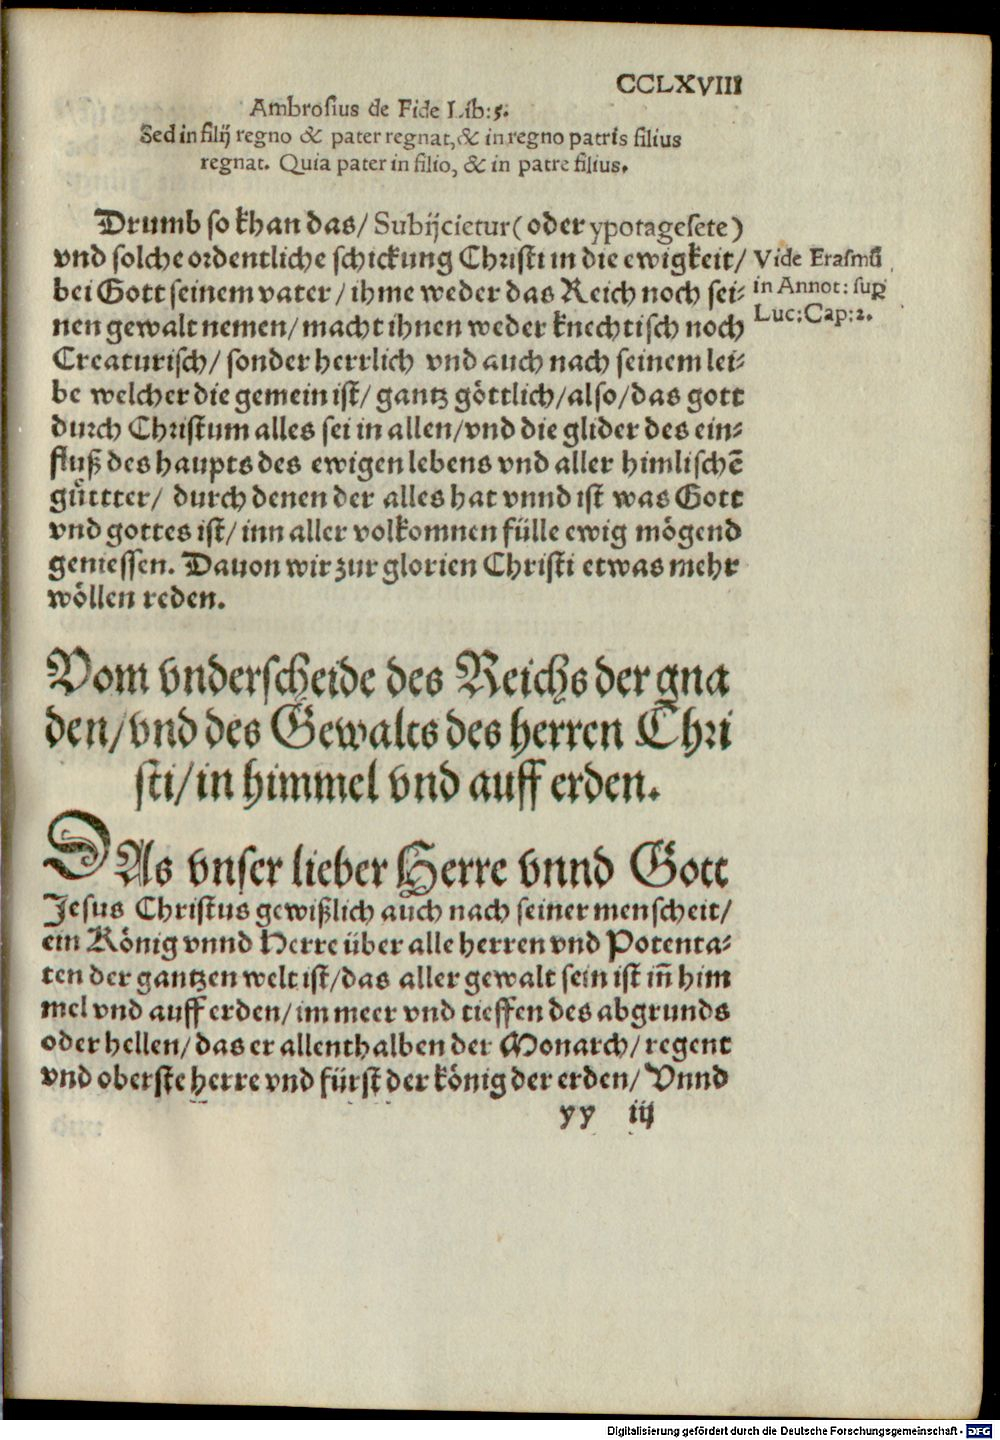 CCLXVIII
Ambrosius de Fide Lib:5.
Sed in filij regno & pater regnat, & in regno patris filius
regnat. Quia pater in filio, & in patre filius.
Drumb so khan das/ Subijcietur (oder ypotagesete)
vnd solche ordentliche schickung Christi in die ewigkeit/
bei Gott seinem vater/ ihme weder das Reich noch sei-
nen gewalt nemen/ macht ihnen weder knechtisch noch
Creaturisch/ sonder herrlich vnd auch nach seinem lei-
be welcher die gemein ist/ gantz göttlich/ also/ das gott
durch Christum alles sei in allen/ vnd die glider des ein-
fluß des haupts des ewigen lebens vnd aller himlischē
gůttter/ durch denen der alles hat vnnd ist was Gott
vnd gottes ist/ inn aller volkomnen fülle ewig mögend
geniessen. Dauon wir zur glorien Christi etwas mehr
wöllen reden.
Vide Erasmū
in Annot: sup
Luc: Cap: 2.
Vom vnderscheide des Reichs der gna
den/ vnd des Gewalts des herren Chri
sti/ in himmel vnd auff erden.
DAs vnser lieber Herre vnnd Gott
Jesus Christus gewißlich auch nach seiner menscheit/
ein König vnnd Herre über alle herren vnd Potenta-
ten der gantzen welt ist/ das aller gewalt sein ist iñ him
mel vnd auff erden/ im meer vnd tieffen des abgrunds
oder hellen/ das er allenthalben der Monarch/ regent
vnd oberste herre vnd fürst der könig der erden/ Vnnd
yy iij
Digitalisierung gefördert durch die Deutsche Forschungsgemeinschaft - DFG